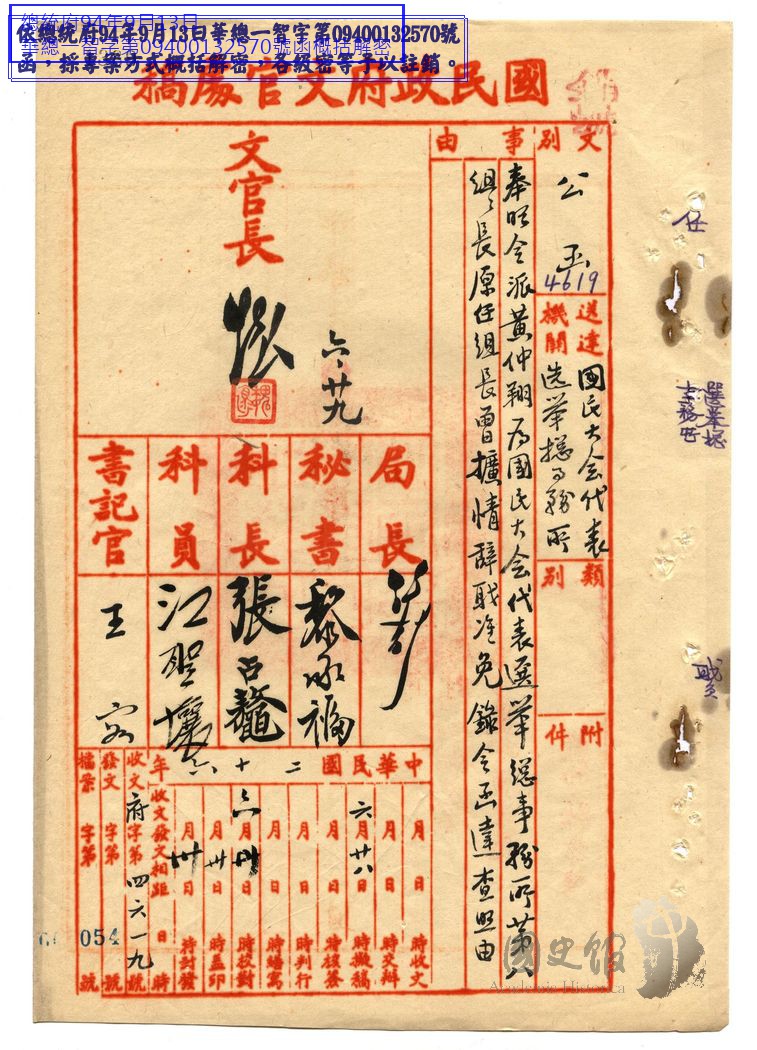 總統府94年9月13日
華總一智字第09400132570號函概括解密
依總統府94年9月13日華總一智字第09400132570號
函，採專案方式概括解密，各級密等予以註銷。
國民政府文官處稿
文別
公函
4619
送達機關
國民大会代表
选举總事務所
類別
附件
事由
奉明令派黃仲翔為國民大会代表選举總事務所第八
組組長原任組長曹擴情辭职准免錄令函達查照由
文官長
六、廿九
局長
秘書
科長
張
科員
江
書記官
王
中華民國二十六年
月日時收文
月日時交辦
六月廿八日時擬稿
月日時核簽
月日時判行
月日時繕寫
六月卅日時校對
月卅日時蓋印
月卅日時封發
收文發文相距日時
收文府字第四六一九號
發文字第號
檔案字第號
054
任
選舉總
事務所
職員
國史館
Academia Historica